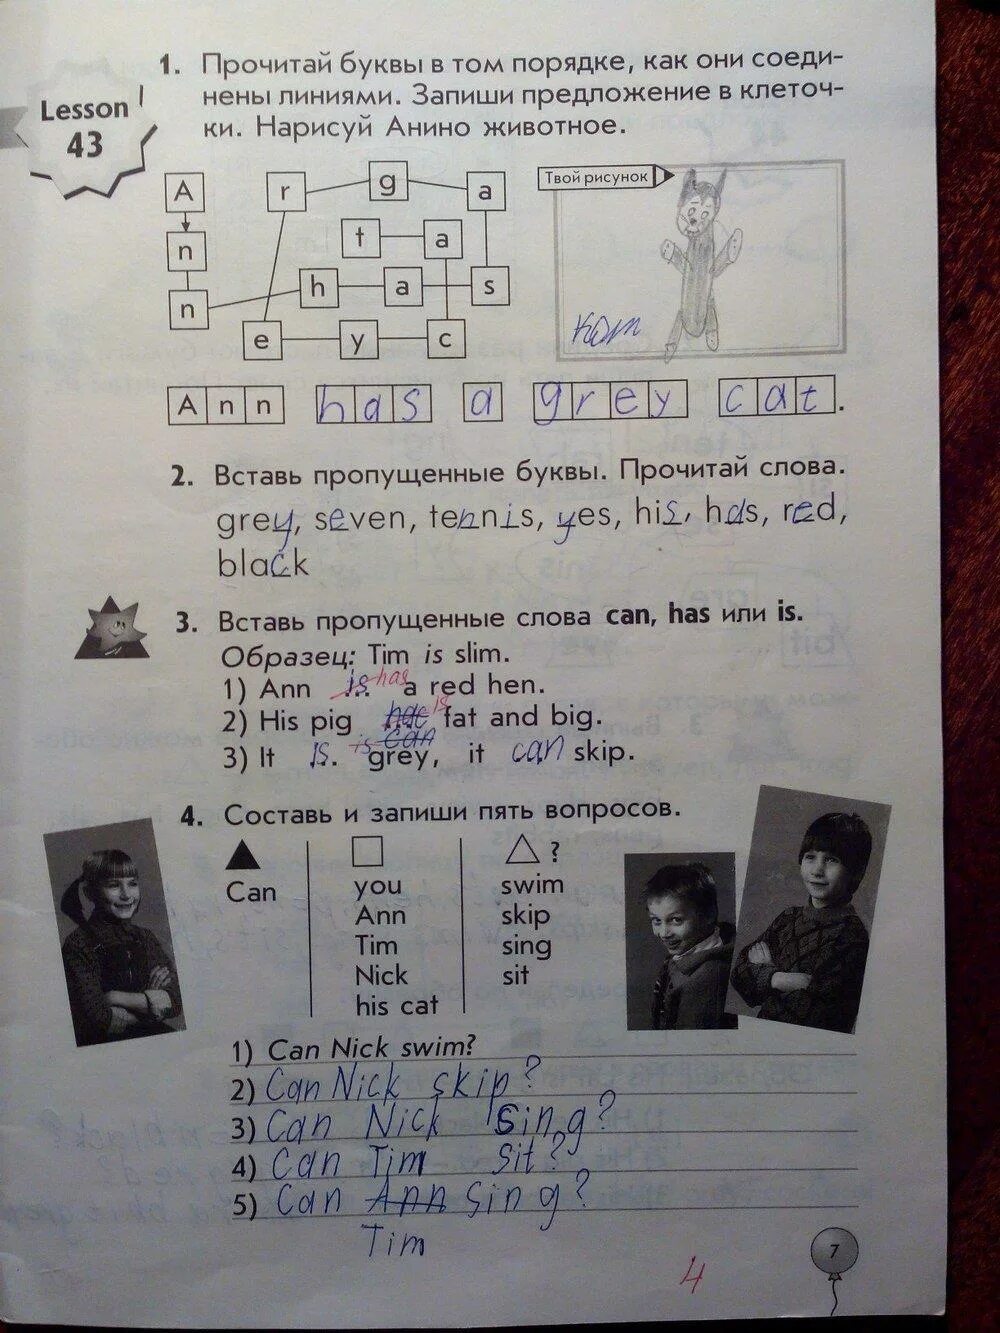 Lesson
43
1. Прочитай буквы в том порядке, как они соеди-
нены линиями. Запиши предложение в клеточ-
ки. Нарисуй Анино животное.
A r g a
Твой рисунок
n t a
n h a s
e y c
кот
Ann has a grey cat.
2. Вставь пропущенные буквы. Прочитай слова.
grey, seven, tennis, yes, his, has, red,
black
3. Вставь пропущенные слова can, has или is.
Образец: Tim is slim.
1) Ann is has a red hen.
2) His pig is fat and big.
is can
3) It is grey, it can skip.
4. Составь и запиши пять вопросов.
?
Can you swim
Ann skip
Tim sing
Nick sit
his cat
1) Can Nick swim?
2) Can Nick skip?
3) Can Nick sing?
4) Can Tim sit?
5) Can Ann sing?
Tim
4
7